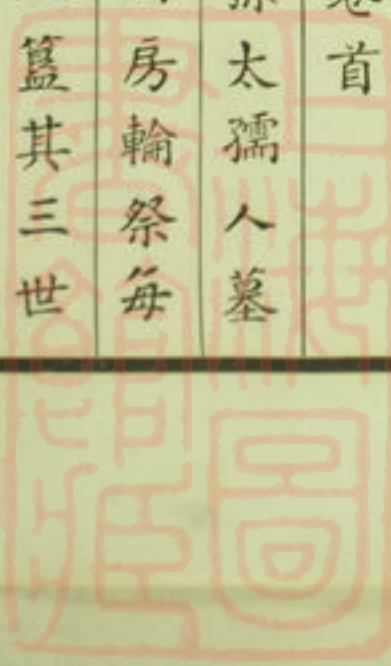 卷首
孫太孺人墓
房輪祭每
簋其三世